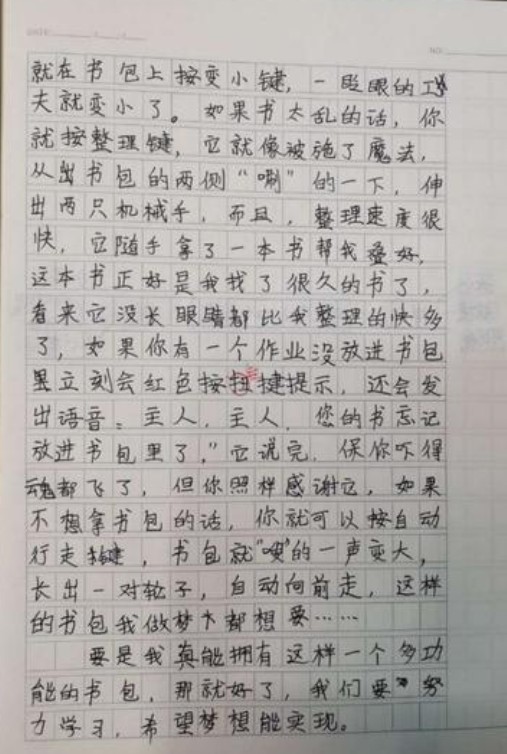 就在书包上按变小键，一眨眼的工
夫就变小了。如果书太乱的话，你
就按整理键，它就像被施了魔法，
从书包的两侧“唰”的一下，伸
出两只机械手，而且，整理速度很
快，它随手拿了一本书帮我叠好，
这本书正好是我找了很久的书了，
看来它没长眼睛都比我整理的快多
了，如果你有一个作业没放进书包
里立刻会红色按扭捷提示，还会发
出语音：主人，主人，您的书忘记
放进书包里了，”它说完，保你吓得
魂都飞了，但你照样感谢它，如果
不想拿书包的话，你就可以按自动
行走键，书包就“嗖”的一声变大，
长出一对轮子，自动向前走，这样
的书包我做梦都想要……
要是我真能拥有这样一个多功
能的书包，那就好了，我们要努
力学习，希望梦想能实现。